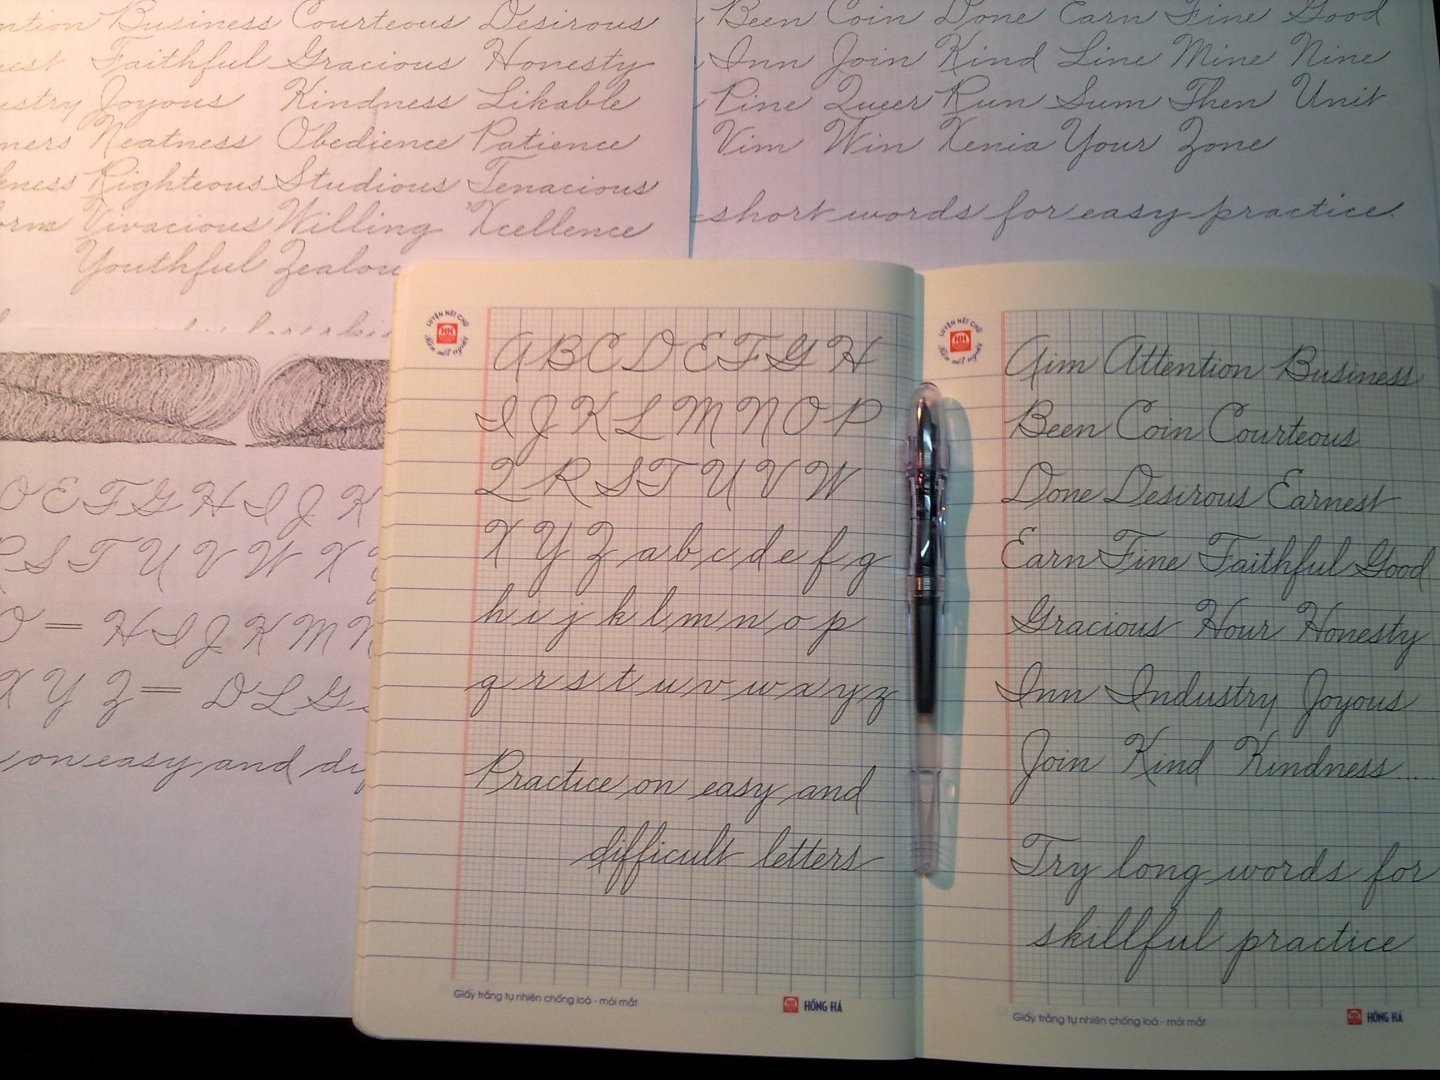 Business Courteous Desirous
Faithful Gracious Honesty
Joyous Kindness Likable
Neatness Obedience Patience
Righteous Studious Tenacious
Vivacious Willing Xcellence
Youthful
Been Coin Done Earn Fine Good
Inn Join Kind Line Mine Nine
Pine Queer Run Sum Then Unit
Vim Win Xenia Your Zone
short words for easy practice.
E F G H I J K
S T U V W X
= H I J K M N
X Y Z = D L G
on easy and
LUYỆN NÉT CHỮ
A B C D E F G H
I J K L M N O P
Q R S T U V W
X Y Z a b c d e f g
h i j k l m n o p
q r s t u v w x y z
Practice on easy and
difficult letters
Giấy trắng tự nhiên chống loá - mỏi mắt
HỒNG HÀ
LUYỆN NÉT CHỮ
Aim Attention Business
Been Coin Courteous
Done Desirous Earnest
Earn Fine Faithful Good
Gracious Hour Honesty
Inn Industry Joyous
Join Kind Kindness.....
Try long words for
skillful practice
Giấy trắng tự nhiên chống loá - mỏi mắt
HỒNG HÀ